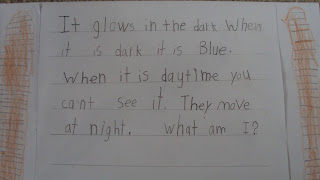 It glows in the dark when
it is dark it is Blue.
When it is daytime you
cant see it. They move
at night. What am I?